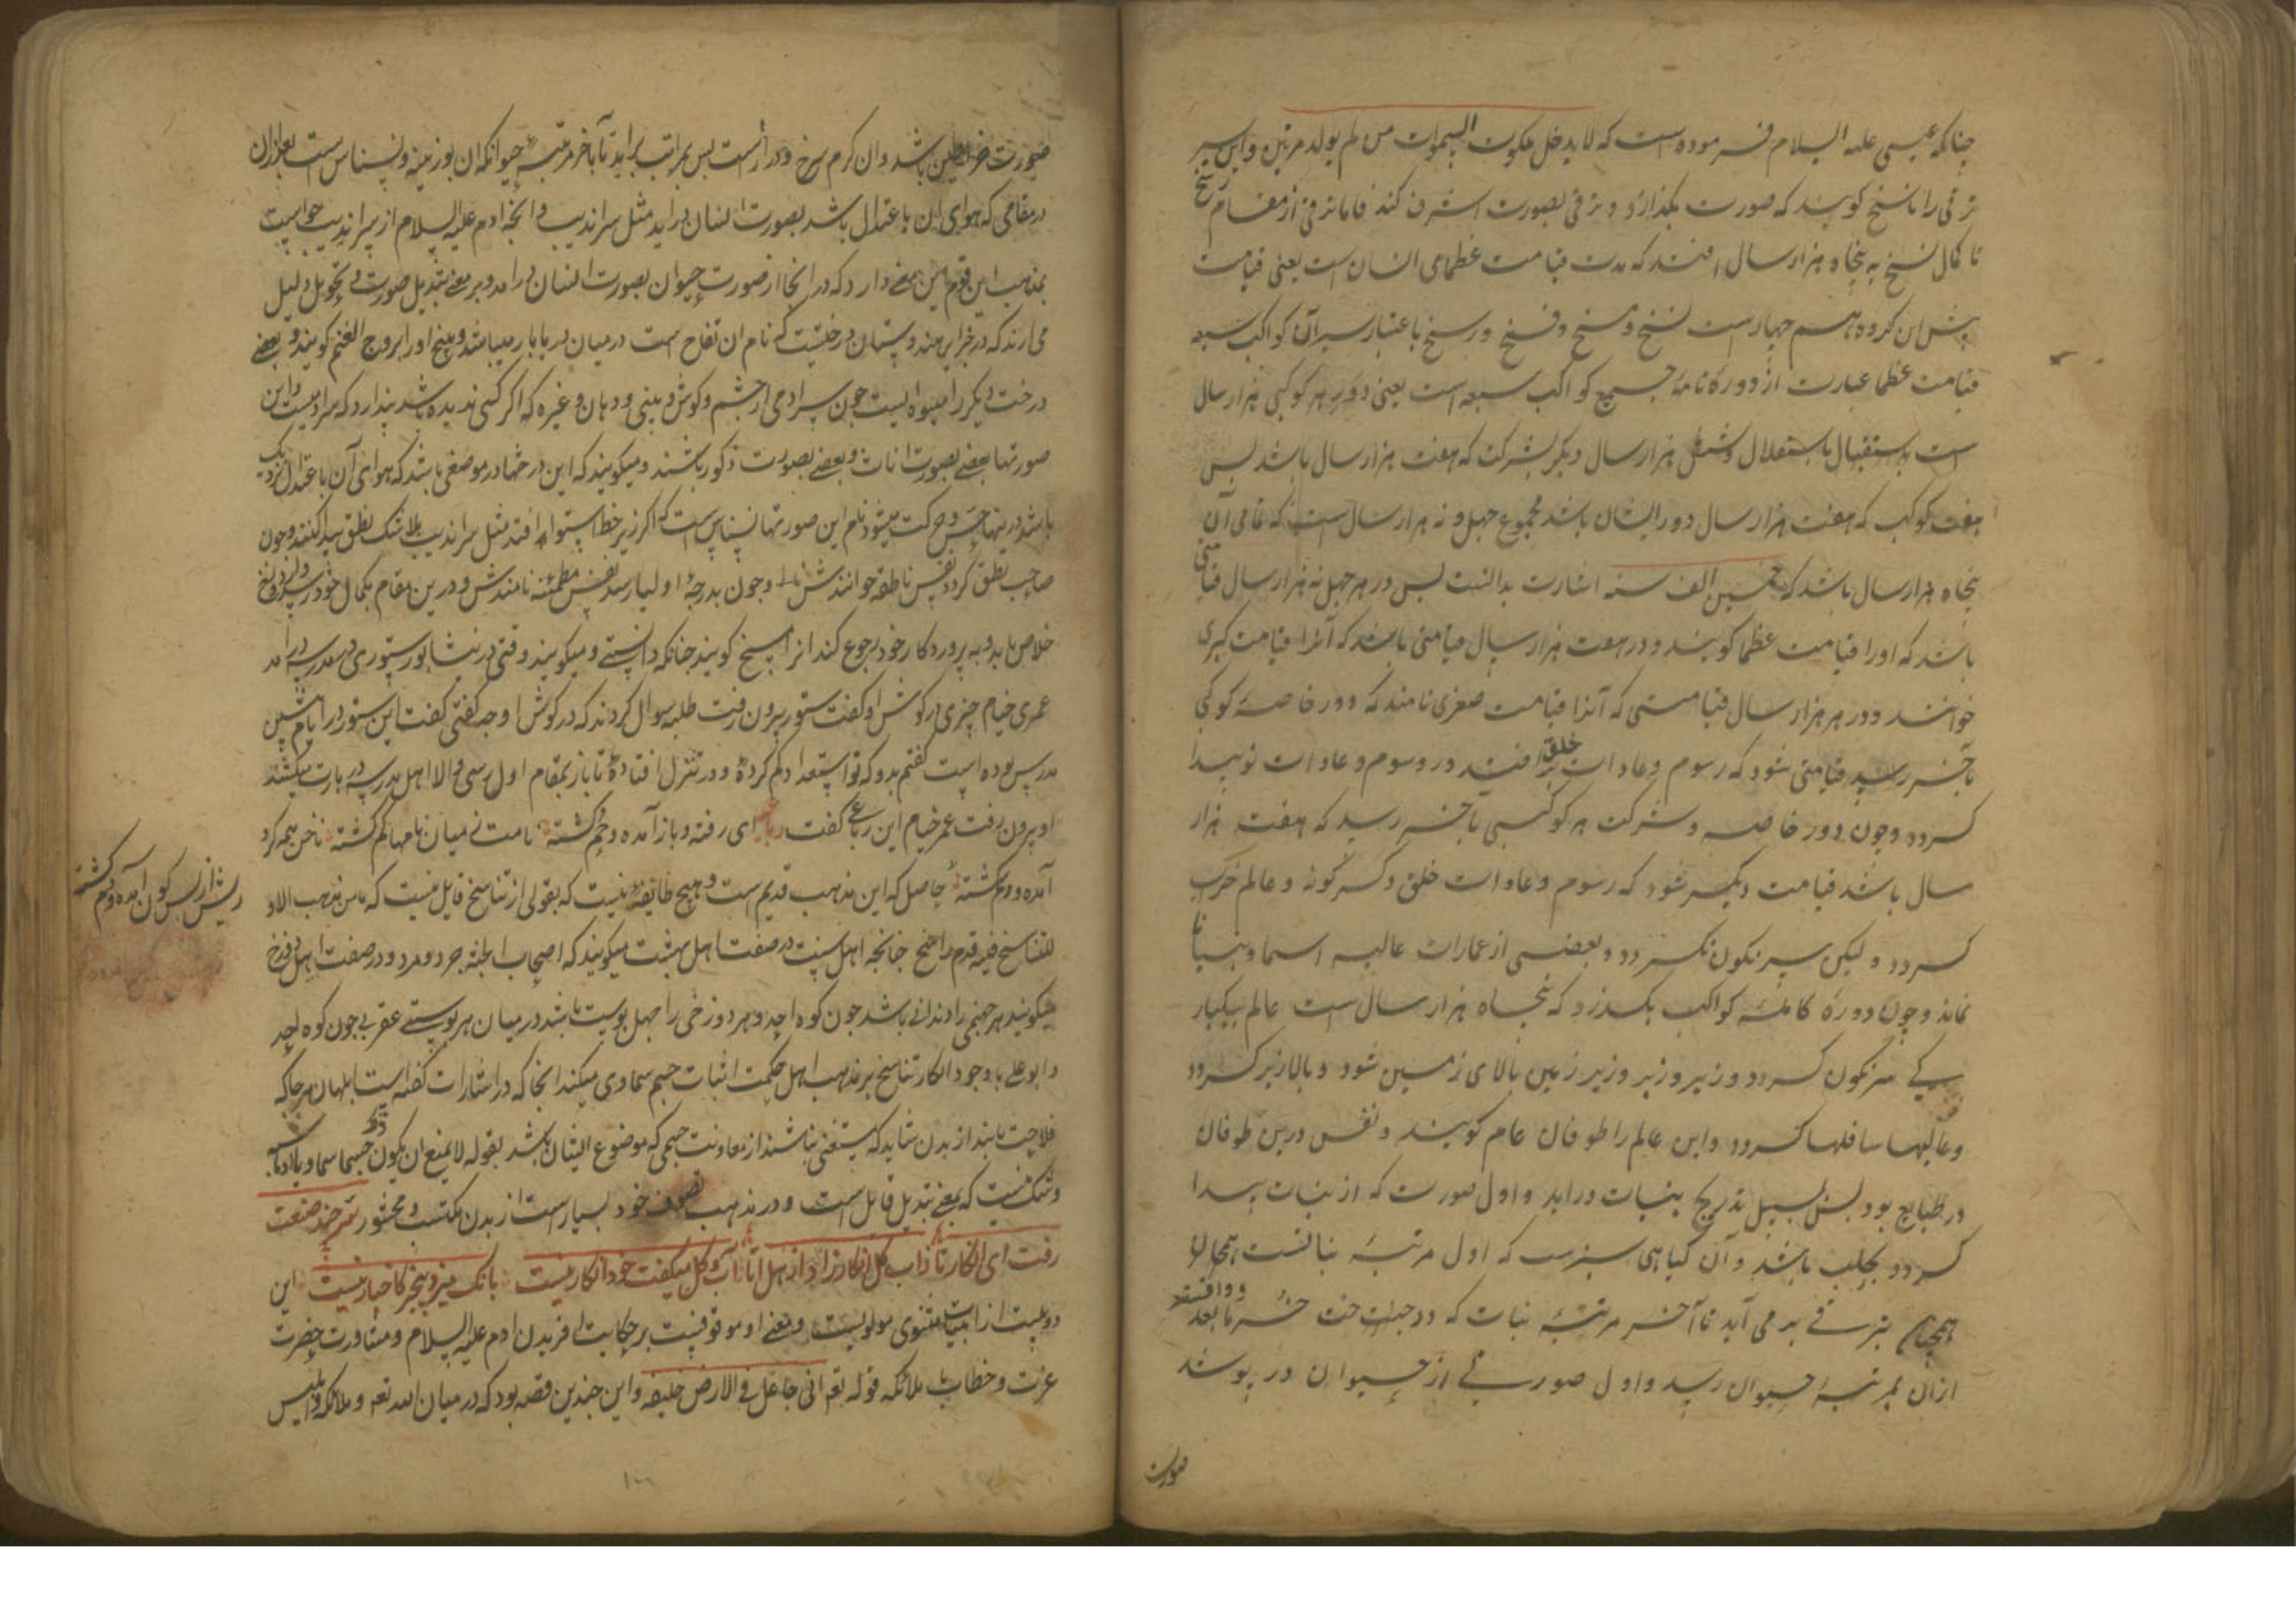 چنانکه عیسی علیه السلام فرموده است که لا یدخل ملکوت السموات من لم یولد مرتین و این سیر
ترقی را ناسخ کویند که صورت بکذارد و ترقی بصورت اشرف کند فاما ترقی از مقام نسخ
تا کمال نسخ به پنجاه هزار سال افتد که مدت قیامت عظمای انسان است یعنی قیامت
پیش این کروه هم چهارست نسخ و مسخ و فسخ و رسخ باعتبار سیران کواکب سبعه
قیامت عظما عبارت از دوره تامه جمیع کواکب سبعه است یعنی دور هر کوکبی هزار سال
است باستقلال و شش هزار سال دیکر بشرکت که هفت هزار سال باشد پس
هفت کوکب که هفت هزار سال دور ایشان باشد مجموع چهل و نه هزار سال است که تمامی آن
پنجاه هزار سال باشد که خمسین الف سنه اشارت بدانست پس در هر چهل نه هزار سال قیامتی
باشد که اورا قیامت عظما کویند و در هفت هزار سال قیامتی باشد که آنرا قیامت کبری
خوانند و در هر هزار سال قیامتی که آنرا قیامت صغری نامند که دور خاصه کوکبی
باخر رسد قیامتی شود که رسوم و عادات خلق بر افتد و رسوم و عادات نو پیدا
کردد و چون دور خاصه و شرکت هر کوکبی باخر رسید که هفت هزار
سال باشد قیامت دیکر شود که رسوم و عادات خلق دکر کونه و عالم خراب
کردد و لیکن سرنکون نکردد و بعضی از عمارات عالیه
نماند و چون دوره کامله کواکب بکذرد که پنجاه هزار سال است عالم بیکبار
کی سرنکون کردد و زیر و زبر و زیر زمین بالای زمین شود و بالا زیر کردد
و عالیها سافلها کردد و این عالم را طوفان عام کویند و نفس درین طوفان
در طبایع بود پس بسبیل تدریج بنبات دراید و اول صورت که از نبات پیدا
کردد طحلب باشد و آن کیاهی سبزست که اول مرتبه نباتست
همچنان بترقی بر می آید تا آخر مرتبه نبات که درخت خرما بعد
ازان بمرتبه حیوان رسد و اول صورتی از حیوان در پوشد
صورت
صورت خراطین باشد و ان کرم سرخ و درازست پس بمراتب براید تا باخر مرتبه حیوانکه ان بوزینه و نسناس است بعد ازان
در مقامی که هوای ان باعتدال باشد بصورت انسان دراید مثل سراندیب و انچه ادم علیه السلام از سراندیب خواست
بمذهب این قوم این معنی دارد که در انجا از صورت حیوان بصورت انسان درامد و بر معنی تبدیل صورت و تحویل دلیل
می ارند که در جزایر هندوستان درختیست که نام ان تفاح است در میان دریا بار میباشد و بیخ اورا بروج الغنم کویند و بعضی
درخت دیکر را میوه ایست چون سر ادمی از چشم و کوش و بینی و دهان و غیره که اکر کسی ندیده باشد پندارد که سر ادمیست و این
صورتها بعضی بصورت اناث و بعضی بصورت ذکور باشند و میکویند که این درختها در موضعی باشد که هوای آن باعتدال نزدیک
باشد درینها حس و حرکت میشود نام این صورتها نسناس است که اکر زیر خط استوا افتد مثل سراندیب بلا شک نطق پیدا کنند و چون
صاحب نطق کردد نفس ناطقه خوانندش و چون بدرجه اولیا رسد نفس مطمئنه نامندش و درین مقام بکمال خود رسد و از دوزخ
خلاص یابد و به پروردکار خود رجوع کند انرا نسخ کویند چنانکه دانستی و میکویند وقتی در نیشابور ستوری در مدرسه درامد
عمری خیام چیزی در کوش او کفت ستور بیرون رفت طلبه سوال کردند که در کوش او چه کفتی کفت این ستور در ایام پیشین
مدرس بوده است کفتم بدو که تو استعداد کم کرده و در تنزل افتاده تا باز بمقام اول برسی والا اهل مدرسه در بارت میکشند
او بیرون رفت عمر خیام این رباعی کفت رباعی ای رفته و باز آمده و خم کشته نامت ز میان نامها کم کشته ناخن همه کرد
آمده و سم کشته حاصل که این مذهب قدیم است و هیچ طایفه نیست که بقولی از تناسخ قایل نیست که ما من مذهب الا و
للتناسخ فیه قدم راسخ چنانچه اهل سنت در صفت اهل بهشت میکویند که اصحاب الجنة جرد و مرد و در صفت اهل دوزخ
میکویند هر جهنمی را دندانی باشد چون کوه احد و هر دوزخی را چهل پوست باشد در میان هر پوستی عقربی چون کوه احد
و ابو علی با وجود انکار تناسخ بر مذهب اهل حکمت اثبات جسم سماوی میکند انجا که در اشارات کفته است ابلهان هر چا که
فلاحت یابند از بدن شاید که مستغنی نباشند از معاونت جسمی که موضوع ایشان باشد بقوله لا یمنع ان یکون ذلک جسما سماویا
و شک نیست که بمعنی تبدیل قایل است و در مذهب تصوف خود بسیار است از بدن مکتسب و محشور
این
دو بیت از ابیات مثنوی مولویست و معنی او موقوفست بر حکایت افریدن ادم علیه السلام و مشاورت حضرت
عزت و خطاب با ملائکه قوله تعه انی جاعل فی الارض خلیفه و این چندین قصه بود که در میان الله تعه و ملائکه و ابلیس
ریش از پس کون آمده و دم کشته